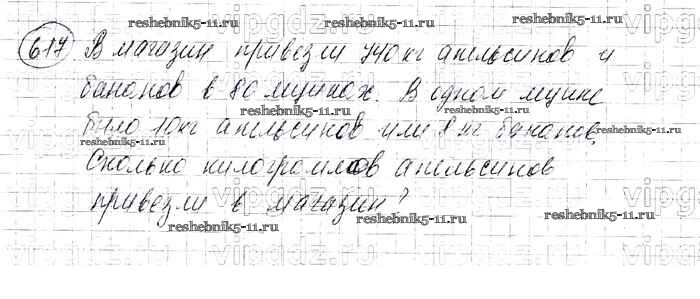 617 В магазин привезли 740 кг апельсинов и
бананов в 80 ящиках. В одном ящике
было 10 кг апельсинов или 8 кг бананов.
Сколько килограммов апельсинов
привезли в магазин?
reshebnik5-11.ru
reshebnik5-11.ru
reshebnik5-11.ru
reshebnik5-11.ru
reshebnik5-11.ru
reshebnik5-11.ru
reshebnik5-11.ru
reshebnik5-11.ru
reshebnik5-11.ru